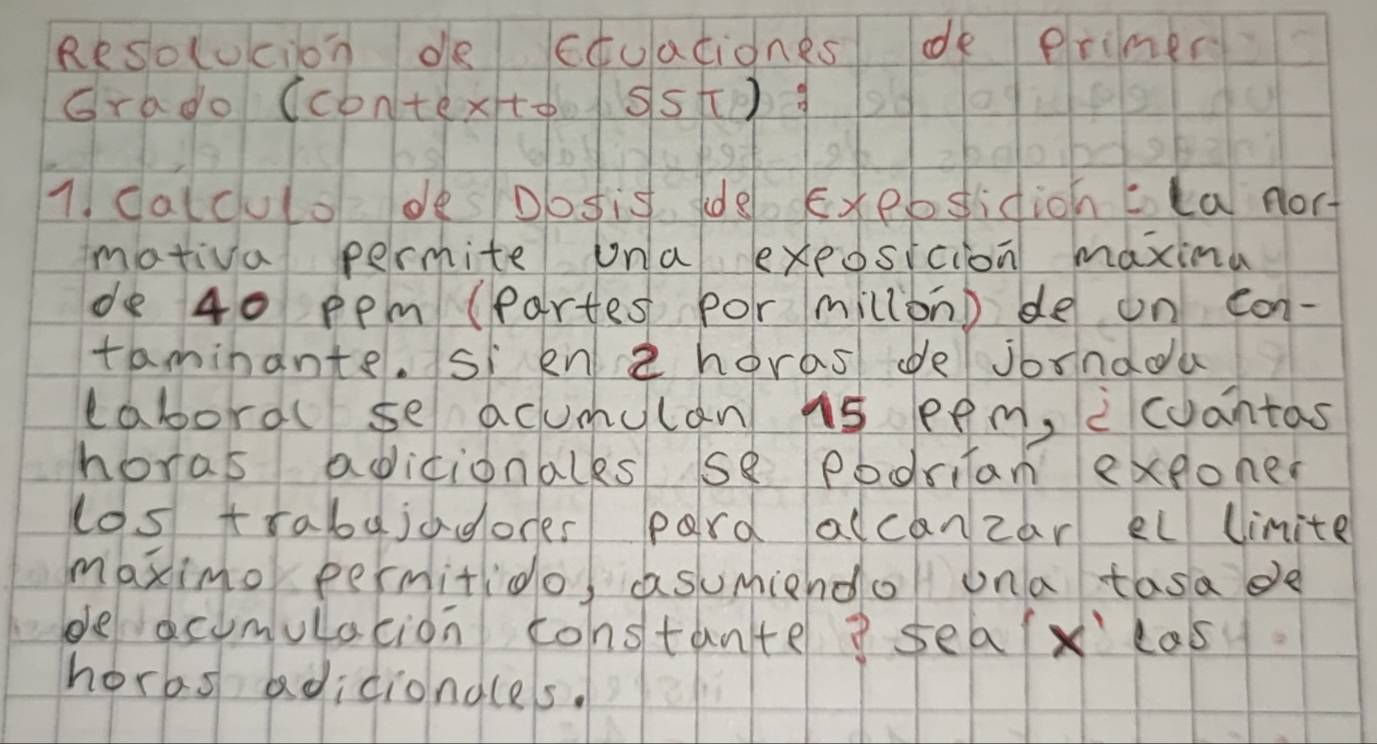 Resolución de Ecuaciones de Primer
Grado (contexto SST):
1. Calculo de Dosis de Exposición: La nor-
mativa permite una exposición máxima
de 40 ppm (Partes por millón) de un con-
taminante. Si en 2 horas de jornada
laboral se acumulan 15 ppm, ¿cuántas
horas adicionales se podrían exponer
los trabajadores para alcanzar el limite
máximo permitido, asumiendo una tasa de
de acumulación constante? sea 'x' las
horas adicionales.